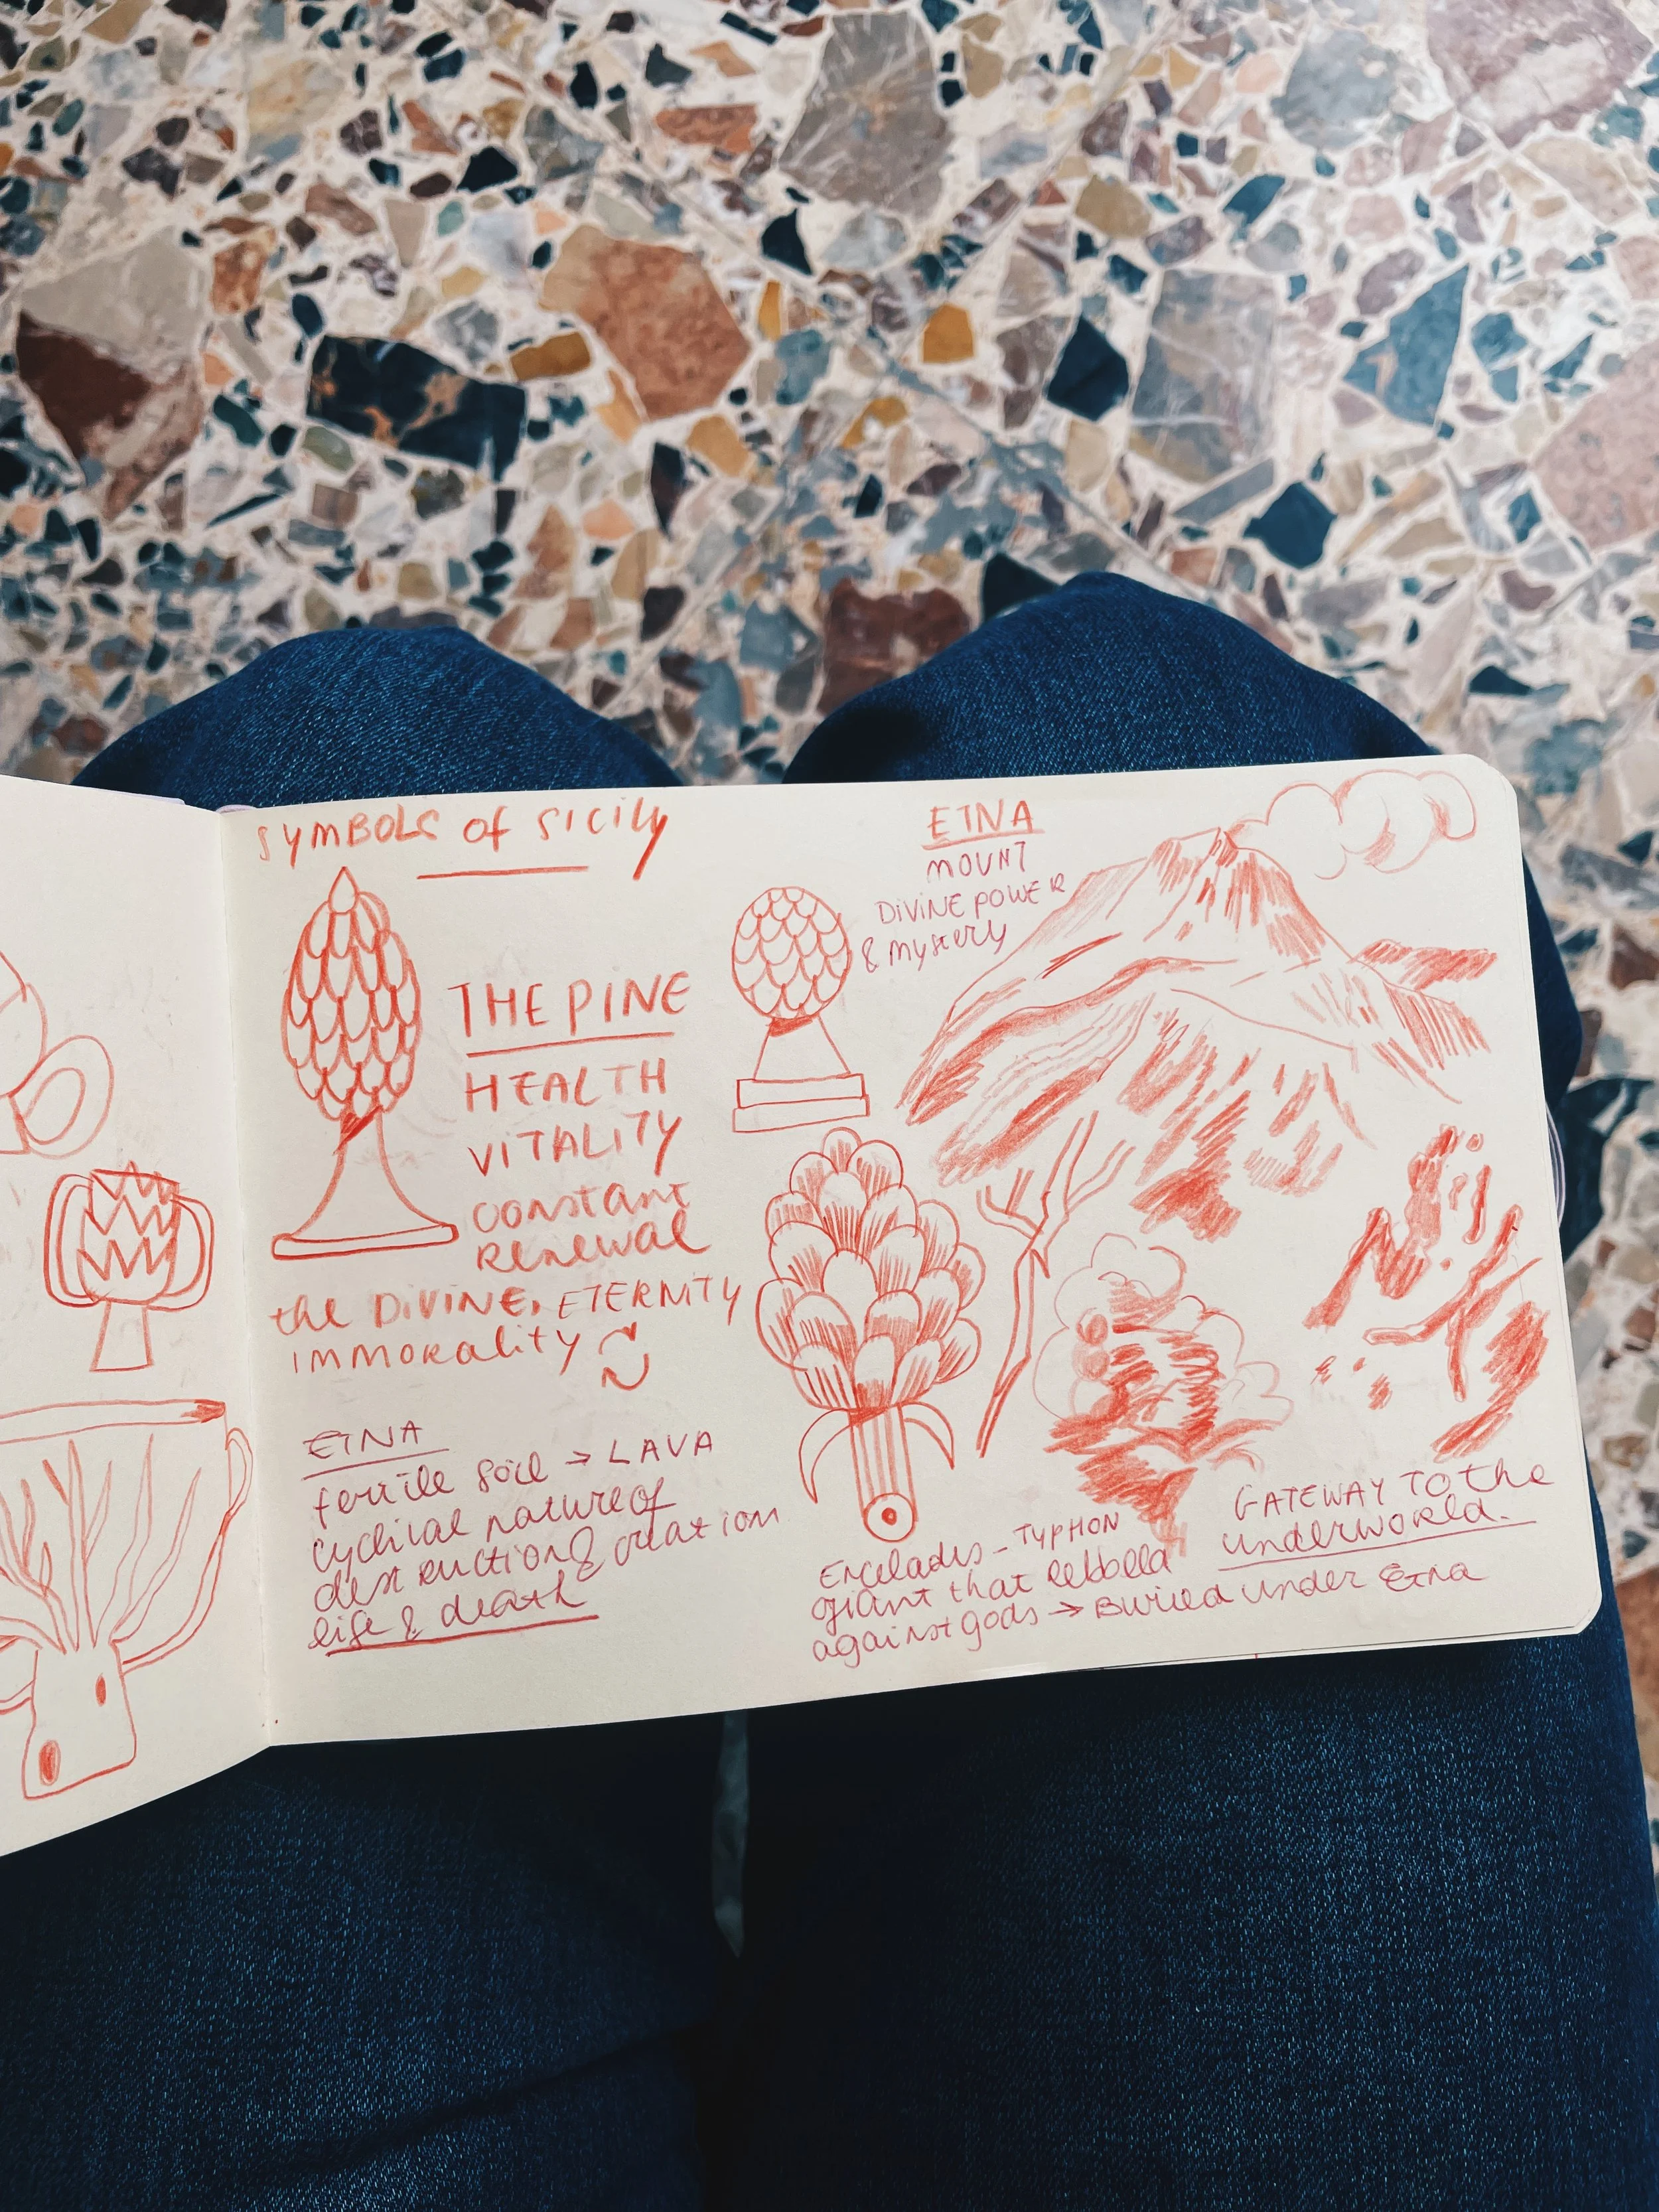 SYMBOLS of SICILY
THE PINE
HEALTH
VITALITY
constant
Renewal
the DIVINE, ETERNITY
IMMORALITY
ETNA
fertile soil → LAVA
cyclical nature of
destruction & creation
life & death
ETNA
MOUNT
DIVINE POWER
& mystery
Encelades - TYPHON
giant that rebbeled
against gods → Buried under Etna
GATEWAY TO the
underworld.